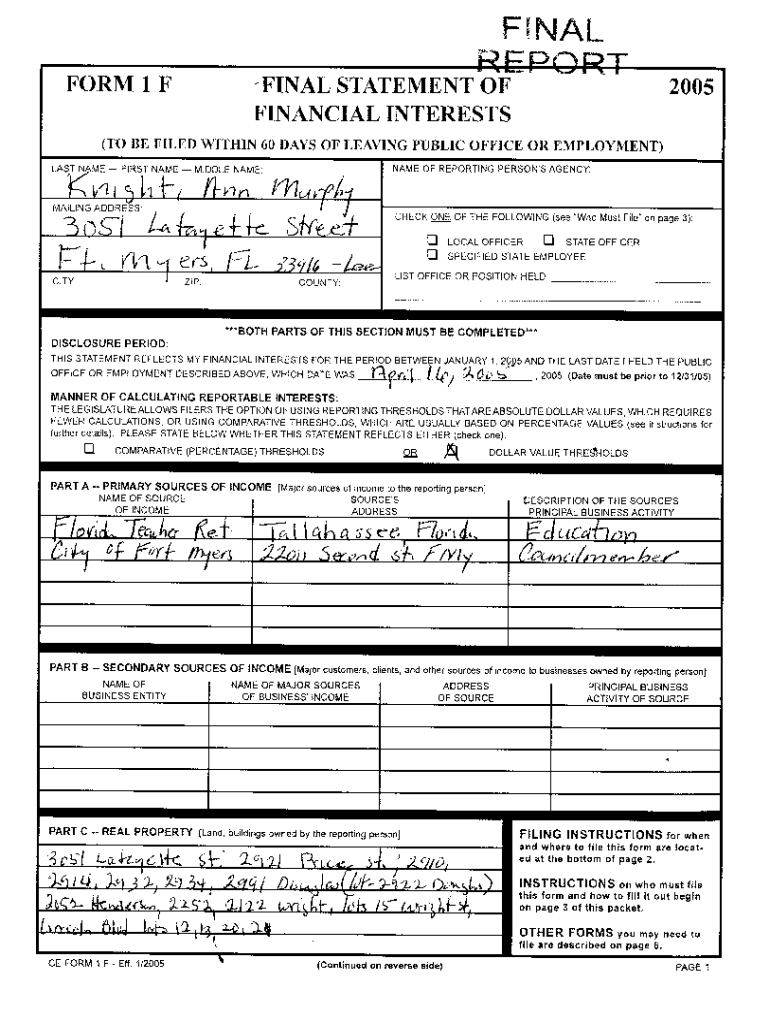 FINAL
REPORT
FORM 1 F FINAL STATEMENT OF 2005
FINANCIAL INTERESTS
(TO BE FILED WITHIN 60 DAYS OF LEAVING PUBLIC OFFICE OR EMPLOYMENT)
LAST NAME — FIRST NAME — MIDDLE NAME:
Knight, Ann Murphy
MAILING ADDRESS:
3051 Lafayette Street
Ft. Myers, FL 33916 - Lee
CITY: ZIP: COUNTY:
NAME OF REPORTING PERSON'S AGENCY:
CHECK ONE OF THE FOLLOWING (see "Who Must File" on page 3):
LOCAL OFFICER STATE OFFICER
SPECIFIED STATE EMPLOYEE
LIST OFFICE OR POSITION HELD
***BOTH PARTS OF THIS SECTION MUST BE COMPLETED***
DISCLOSURE PERIOD:
THIS STATEMENT REFLECTS MY FINANCIAL INTERESTS FOR THE PERIOD BETWEEN JANUARY 1, 2005 AND THE LAST DATE I HELD THE PUBLIC
OFFICE OR EMPLOYMENT DESCRIBED ABOVE, WHICH DATE WAS April 16, 2005, 2005 (Date must be prior to 12/31/05)
MANNER OF CALCULATING REPORTABLE INTERESTS:
THE LEGISLATURE ALLOWS FILERS THE OPTION OF USING REPORTING THRESHOLDS THAT ARE ABSOLUTE DOLLAR VALUES, WHICH REQUIRES
FEWER CALCULATIONS, OR USING COMPARATIVE THRESHOLDS, WHICH ARE USUALLY BASED ON PERCENTAGE VALUES (see instructions for
further details). PLEASE STATE BELOW WHETHER THIS STATEMENT REFLECTS EITHER (check one):
COMPARATIVE (PERCENTAGE) THRESHOLDS OR DOLLAR VALUE THRESHOLDS
PART A -- PRIMARY SOURCES OF INCOME [Major sources of income to the reporting person]
NAME OF SOURCE SOURCE'S DESCRIPTION OF THE SOURCE'S
OF INCOME ADDRESS PRINCIPAL BUSINESS ACTIVITY
Florida Teacher Ret. Tallahassee, Florida Education
City of Fort Myers 2200 Second st. FMy Councilmember
PART B -- SECONDARY SOURCES OF INCOME [Major customers, clients, and other sources of income to businesses owned by reporting person]
NAME OF NAME OF MAJOR SOURCES ADDRESS PRINCIPAL BUSINESS
BUSINESS ENTITY OF BUSINESS' INCOME OF SOURCE ACTIVITY OF SOURCE
PART C -- REAL PROPERTY [Land, buildings owned by the reporting person]
3051 Lafayette St. 2921 Price st., 2910,
2914, 2932, 2934, 2991 Douglas (lot-2922 Douglas)
2052 Henderson, 2252, 2122 wright, lots 15 wright st,
Lincoln Blvd lots 12, 13, 20, 21
FILING INSTRUCTIONS for when
and where to file this form are locat-
ed at the bottom of page 2.
INSTRUCTIONS on who must file
this form and how to fill it out begin
on page 3 of this packet.
OTHER FORMS you may need to
file are described on page 6.
CE FORM 1 F - Eff. 1/2005 (Continued on reverse side) PAGE 1